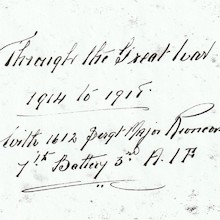 Through the Great War
1914 to 1918.
with 1612 Sergt Major
7th Battery 3rd A.I.B